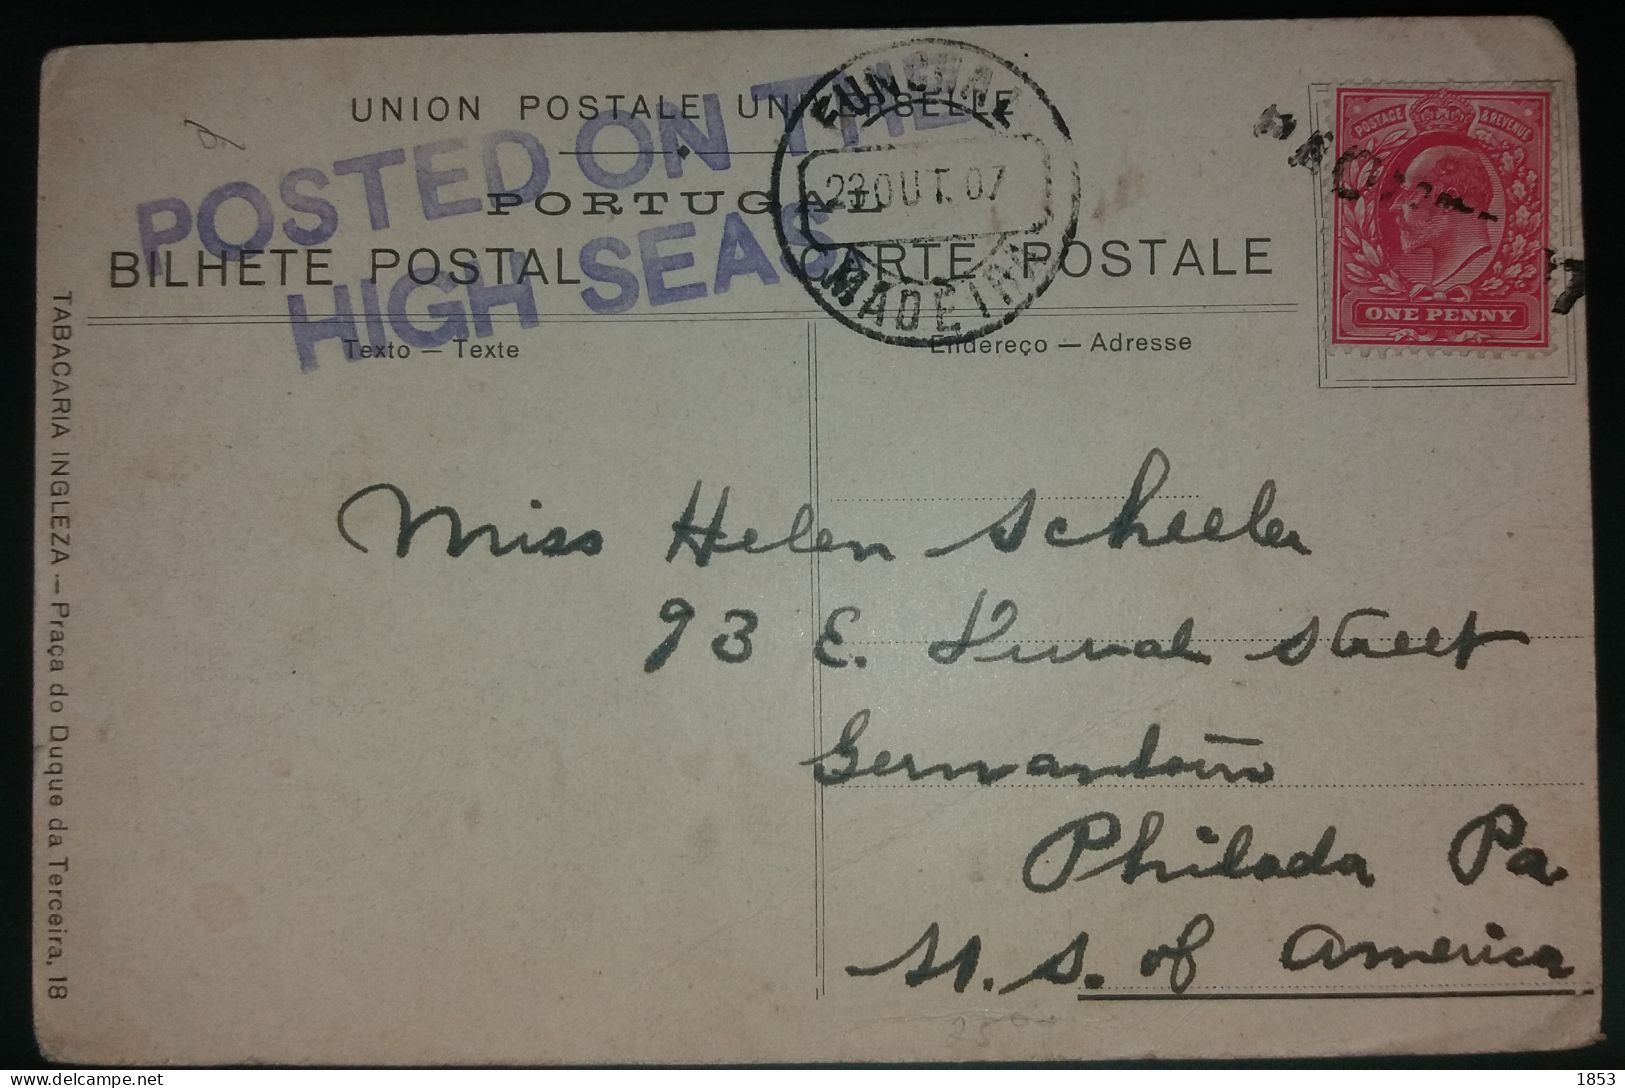 UNION POSTALE UNIVERSELLE
POSTED ON THE
HIGH SEAS
PORTUGAL
BILHETE POSTAL
CARTE POSTALE
FUNCHAL
23 OUT. 07
MADEIRA
POSTAGE & REVENUE
ONE PENNY
Texto — Texte
Endereço — Adresse
Miss Helen Scheeler
93 E. Street
Germantown
Philada Pa
U. S. of America
TABACARIA INGLEZA — Praça do Duque da Terceira, 18
1853